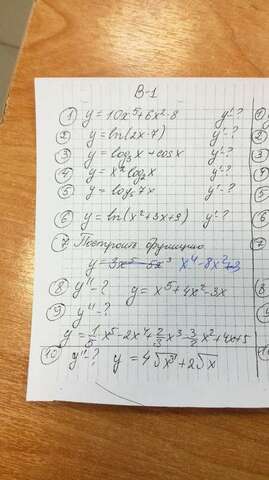 В-1
① y = 10x⁵+6x²-8 y'-?
② y = ln(2x-7) y'-?
③ y = log₃x + cosx y'-?
④ y = x⁷log₂x y'-?
⑤ y = log₅7x y'-?
⑥ y = ln(x²+3x+9) y'-?
⑦ Построить функцию
y = 3x⁵ - 5x³ x⁴-8x²+3
⑧ y''-? y = x⁵+4x²-3x
⑨ y''-?
y = 1/5 x⁵ - 2x⁴ + 2/3 x³ - 3/2 x² + 4x + 5
⑩ y''-? y = 4√x³ + 2√x